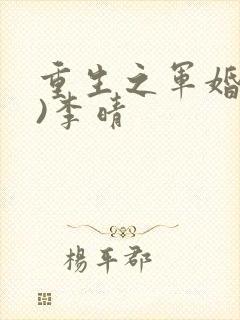 重生之军婚
)李晴
楊平郡